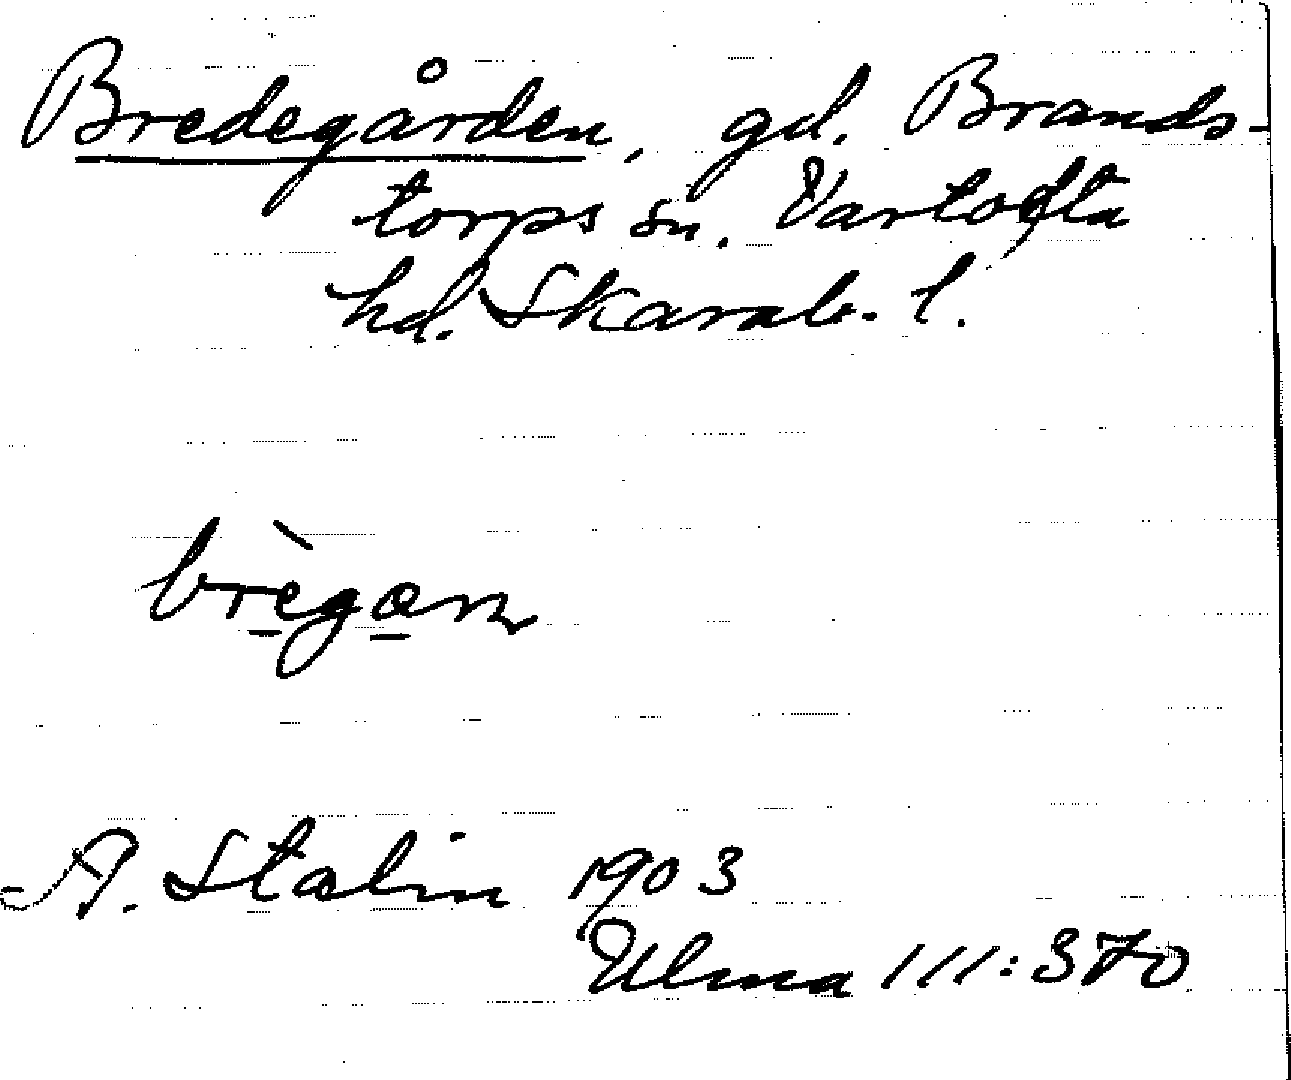 Bredegården, gd. Brands-
torps sn. Vartofta
hd. Skarab. l.
brègan
A. Stalin 1903
Ulma 111:370